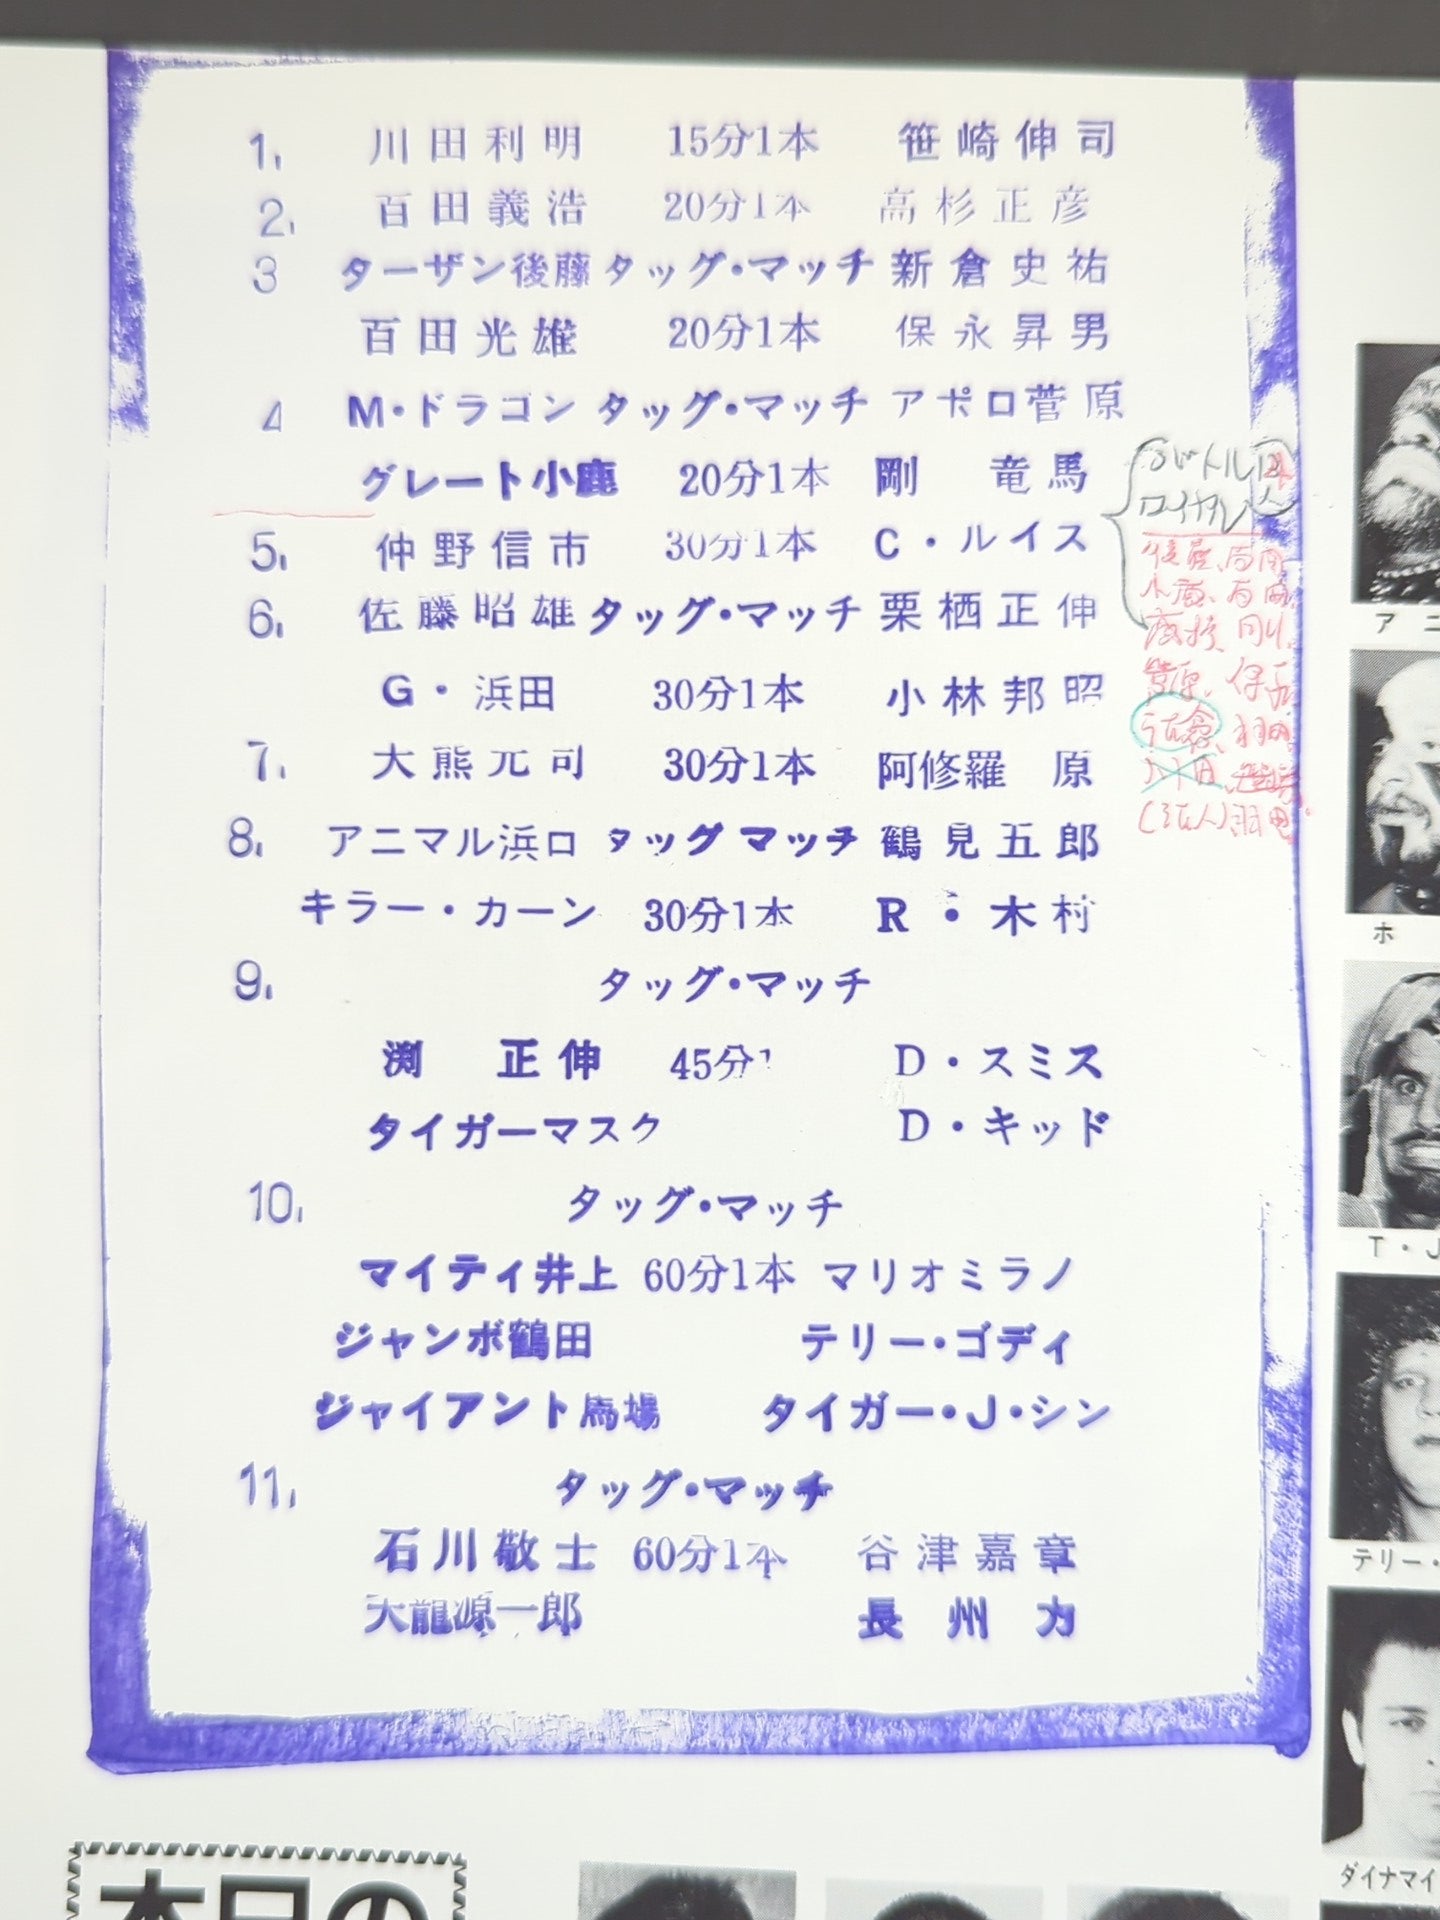 1. 川田利明 15分1本 笹崎伸司
2. 百田義浩 20分1本 高杉正彦
3 ターザン後藤 タッグ・マッチ 新倉史祐
百田光雄 20分1本 保永昇男
4 M・ドラゴン タッグ・マッチ アポロ菅原
グレート小鹿 20分1本 剛 竜馬
バトル
ロイヤル
5. 仲野信市 30分1本 C・ルイス
後藤、百田
小鹿、百田
6. 佐藤昭雄 タッグ・マッチ 栗栖正伸
高杉、剛
菅原、保永
G・浜田 30分1本 小林邦昭
羽田
7. 大熊元司 30分1本 阿修羅 原
8. アニマル浜口 タッグ マッチ 鶴見五郎
キラー・カーン 30分1本 R・木村
9. タッグ・マッチ
渕 正伸 45分1 D・スミス
タイガーマスク D・キッド
10. タッグ・マッチ
マイティ井上 60分1本 マリオミラノ
ジャンボ鶴田 テリー・ゴディ
ジャイアント馬場 タイガー・J・シン
11. タッグ・マッチ
石川敬士 60分1本 谷津嘉章
天龍源一郎 長州力
アニ
ホ
T・J
テリー・
ダイナマイ
本日の